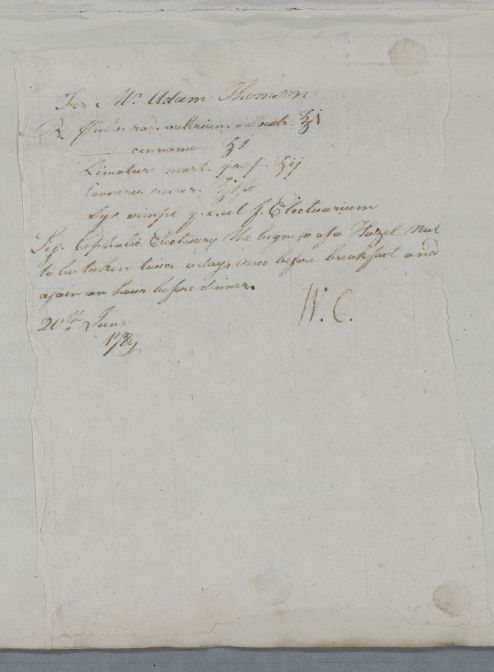 For Mr Adam Thomson
℞ Pulv. rad. valerian. silvestr. ℥i
cinnamon. ʒi
Limatur. mart. ppt. ʒij
Conserv.
Syr. simpl. q. s. ut f. Electuarium
Sig. Cephalic Electuary the bigness of a Hazel Nut
to be taken twice a day, once before breakfast and
again an hour before dinner.
W. C.
20th June